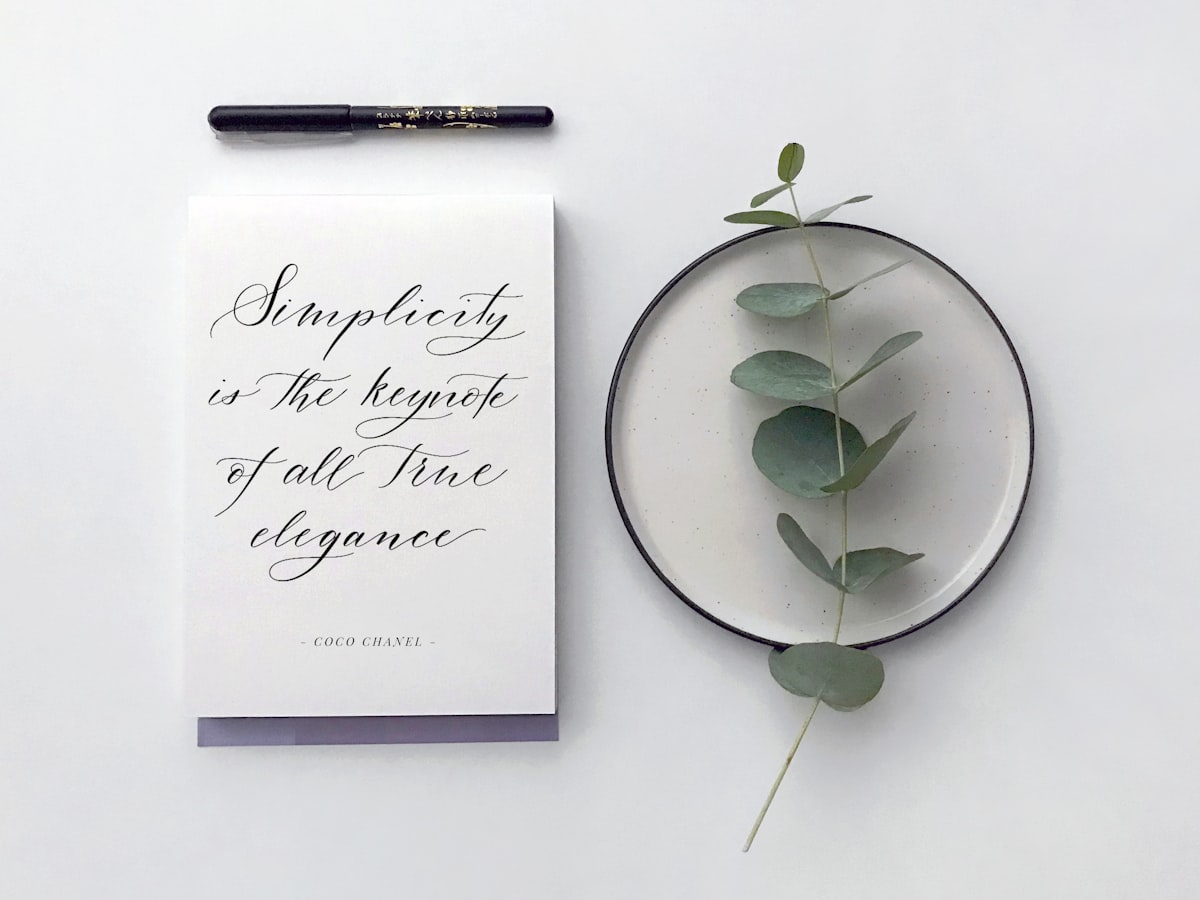 Simplicity
is the keynote
of all true
elegance
- COCO CHANEL -